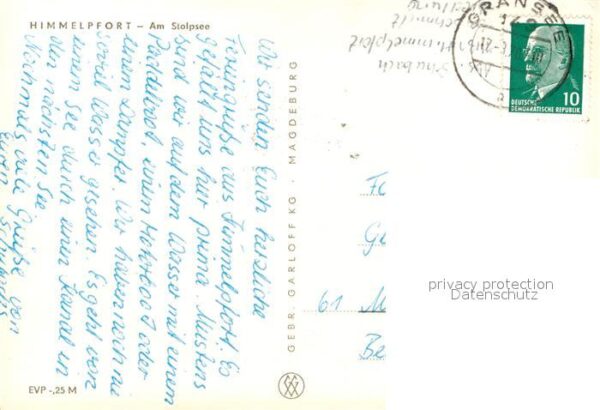 HIMMELPFORT – Am Stolpsee
Wir senden Euch herzliche
Feriengrüße aus Himmelpfort. Es
gefällt uns hier prima. Meistens
sind wir auf dem Wasser mit einem
Paddelboot, einem Motorboot oder
einem Dampfer. Wir haben noch nie
soviel Wasser gesehen. Es geht von
einem See durch einen Kanal in
den nächsten See.
Nochmals viele Grüße von
Euren
EVP -,25 M
GEBR. GARLOFF KG · MAGDEBURG
GRANSEE
DEUTSCHE
DEMOKRATISCHE REPUBLIK
10
Himmelpfort
Fa
Ge
61 M
Be
privacy protection
Datenschutz